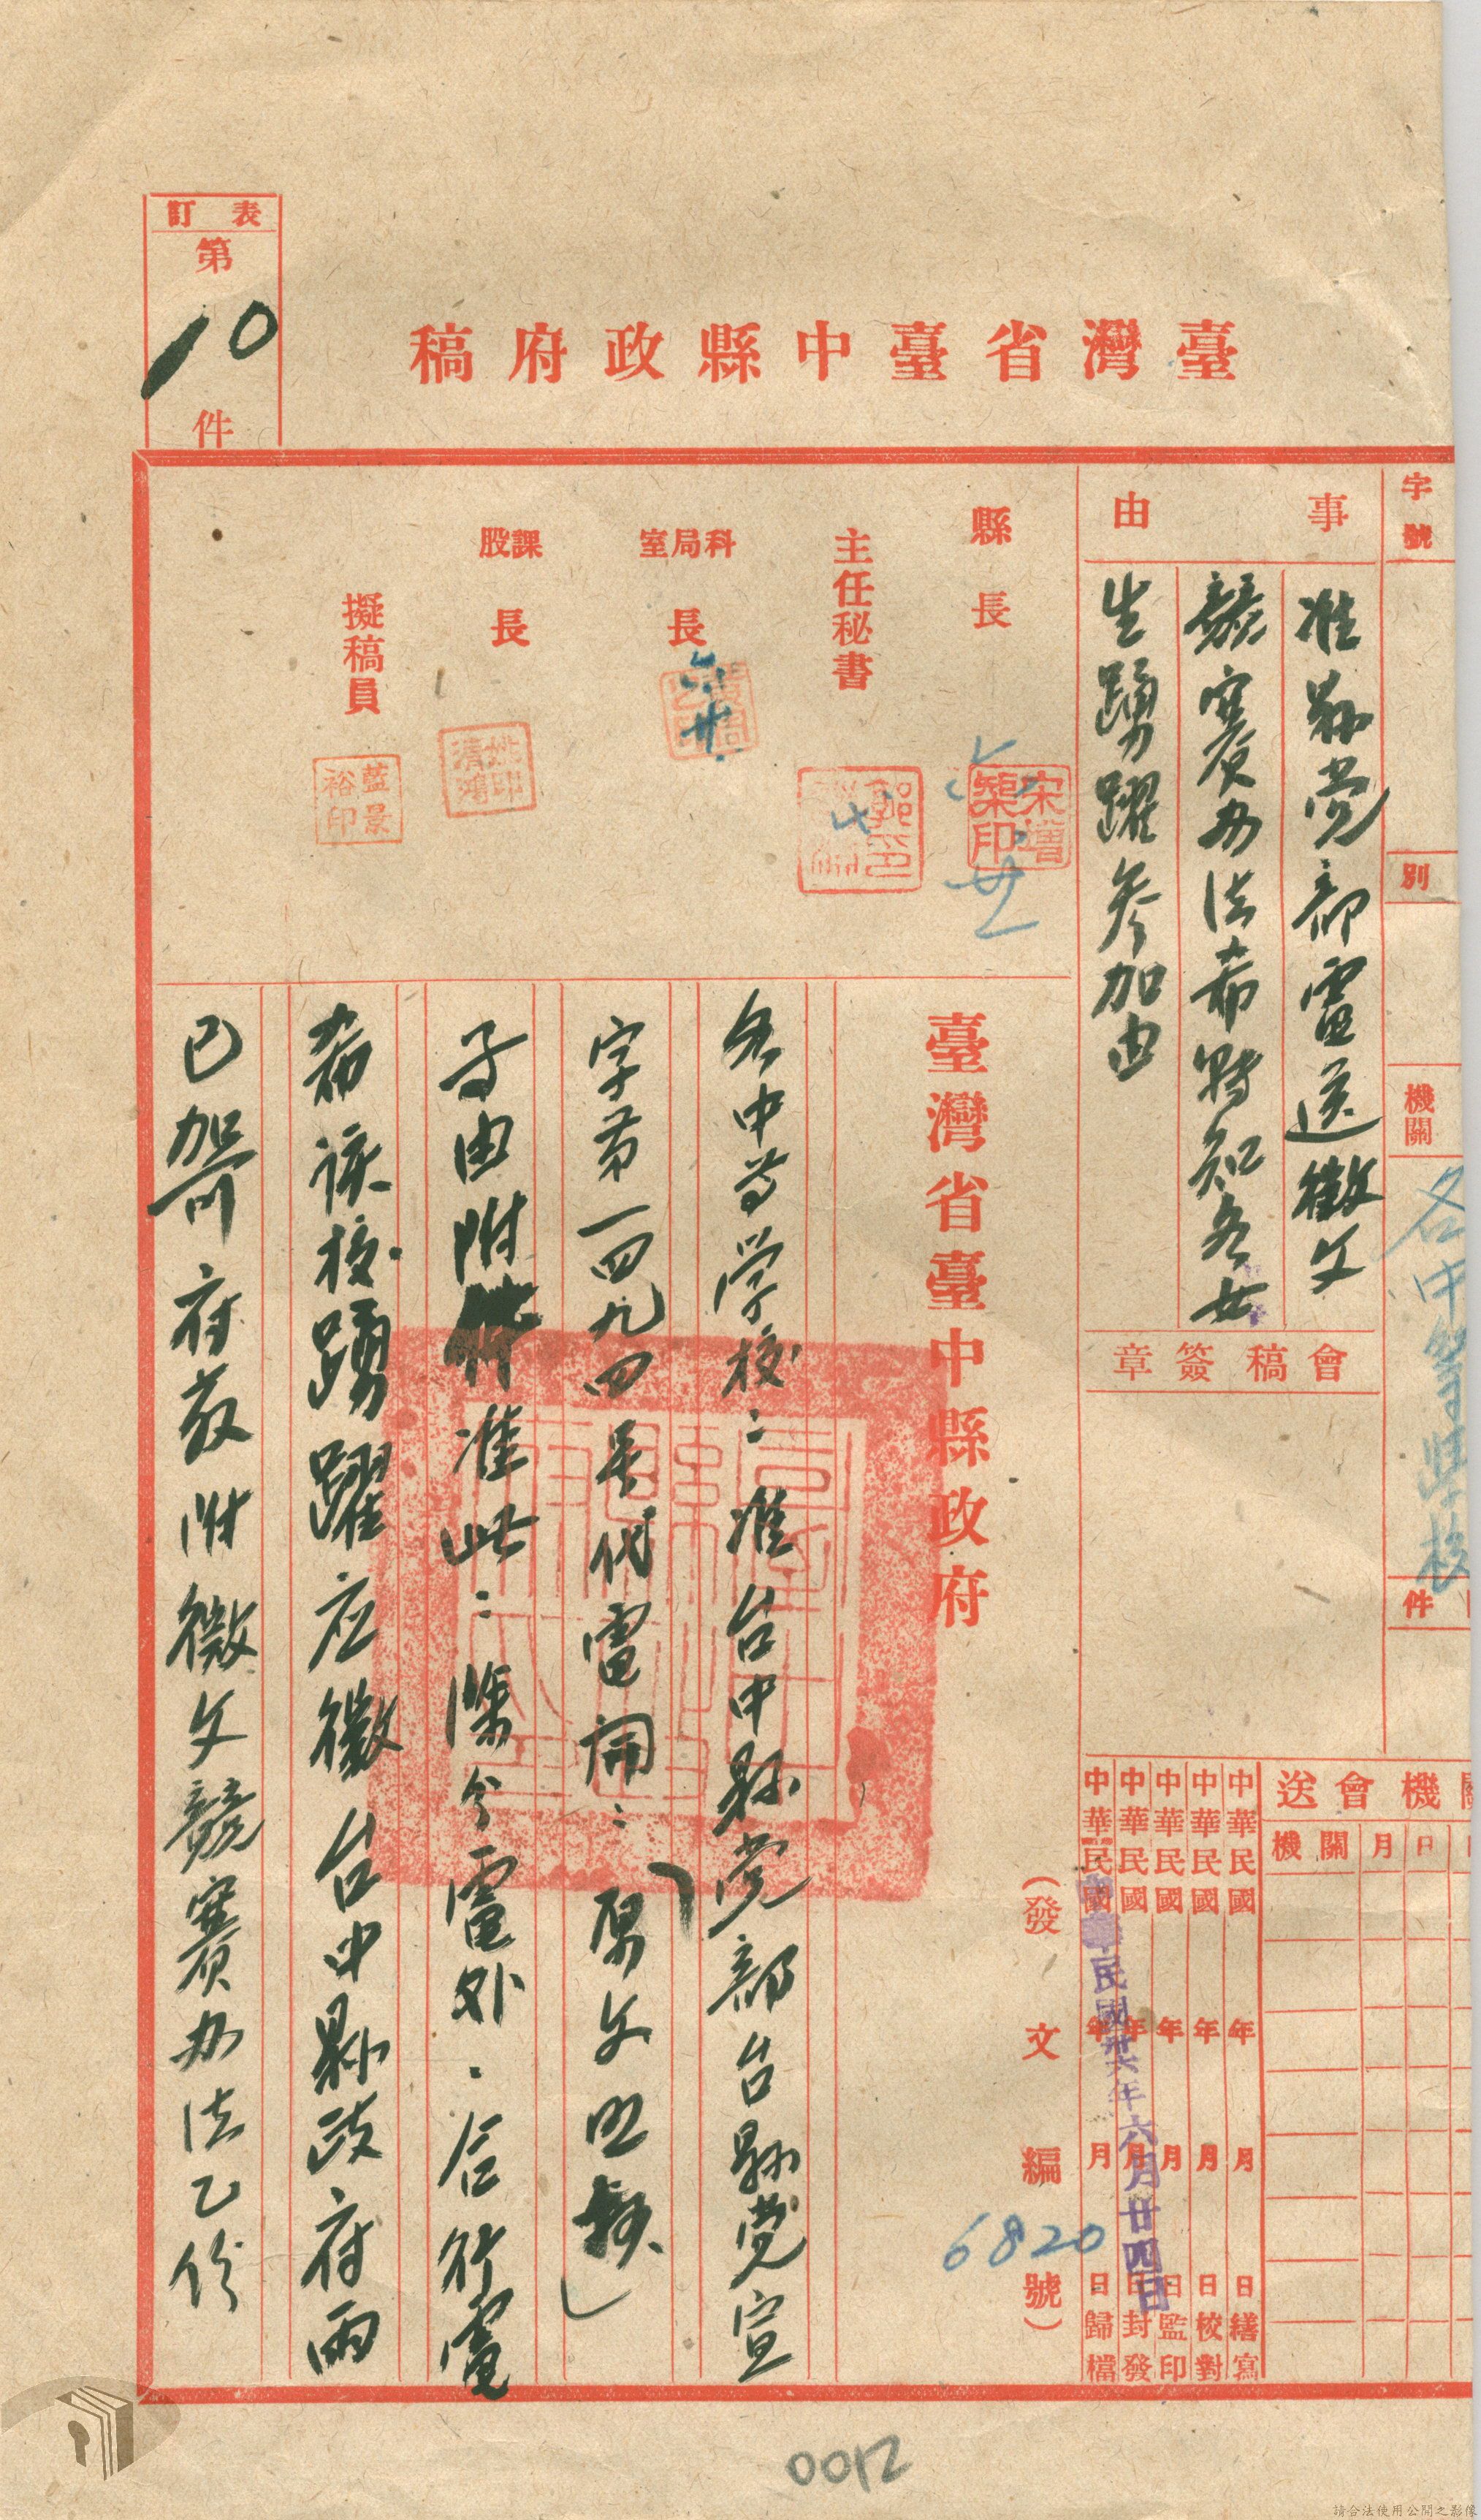 表訂
第
10
件
臺灣省臺中縣政府稿
字號
別
機關
各中等學校
件
事由
准縣党部電送徵文
競賽办法希轉知各女
生踴躍參加由
會稿簽章
會送機關
機關 月 日
中華民國 年 月 日繕寫
中華民國 年 月 日校對
中華民國 年 月 日監印
中華民國 年 月 日封發
中華民國 年 月 日歸檔
中華民國卅六年六月廿四日
縣長
宋增榘印
主任秘書
科局室長
課股長
姚清鴻印
擬稿員
藍景裕印
臺灣省臺中縣政府
(發文編號)
6820
各中等学校：准台中縣党部台縣党宣
字第一四九四号代電開：「原文照
」
等由附件准此：除分電外．合行電
希該校踴躍应徵台中縣政府
府 附徵文競賽办法乙份
0012
請合法使用公開之影像